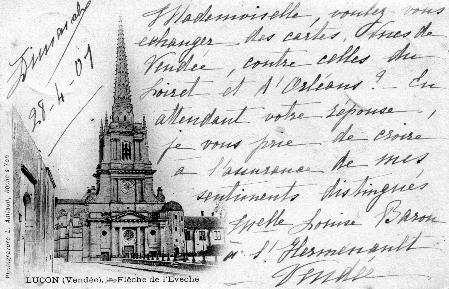 Mademoiselle, voulez vous
echanger des cartes, Vues de
Vendée, contre celles du
Loiret et d'Orléans? En
attendant votre réponse,
je vous prie de croire
a l'assurance de mes
sentiments distingués
Melle Louise Baron
a l'Hermenault
Vendée
Dimanche
28-4-01
LUÇON (Vendée). Flèche de l'Évêché
Phototypie Amiaud, Roche s/Yon